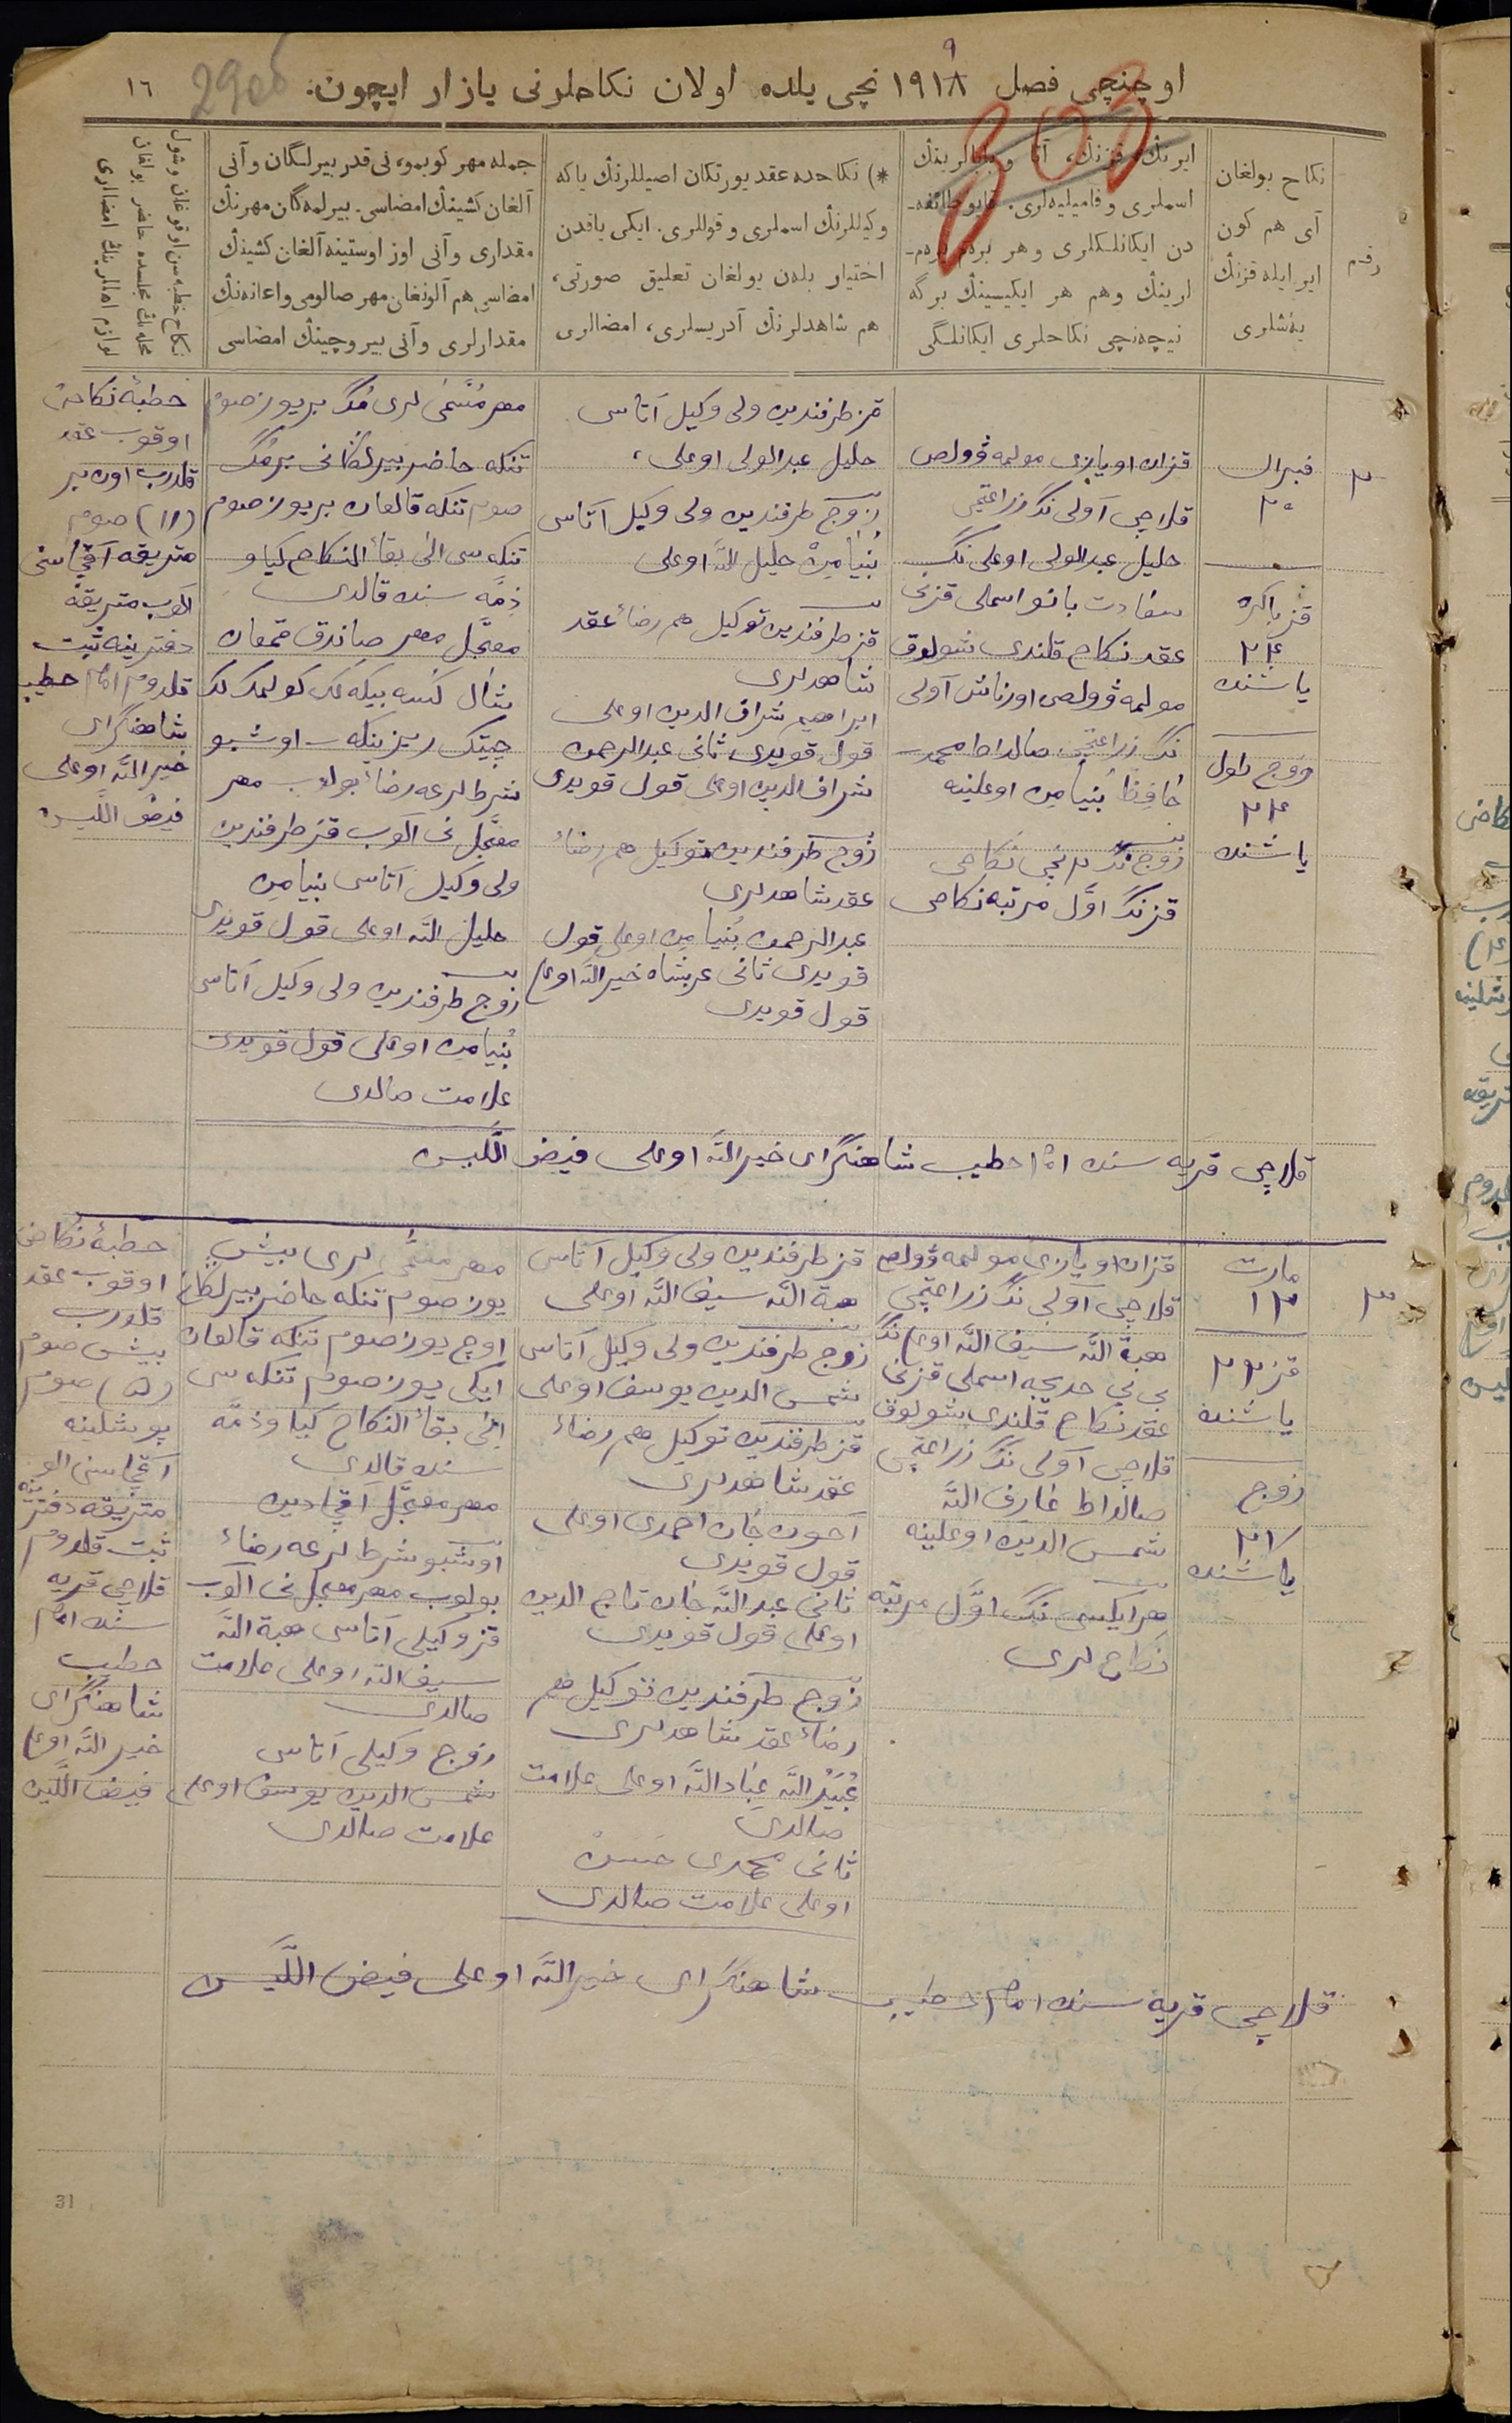 اوچنچی فصل ١٩١٨ نچی یلده اولان نکاحلرنی یازار ایچون.
9
١٦
رقم
نکاح بولغان
آی هم کون
ایر ایله قزنڭ
یهشلری
ایرنڭ، قزنڭ، آتا و بابالرینڭ
اسملری و فامیلیهلری. قایو طائفه‌
دن ایکانلکلری و هر برهم برهم‌
لرینڭ وهم هر ایکیسینڭ برگه
نیچه‌نچی نکاحلری ایکانلگی
*) نکاحده عقد یورتکان اصیللرنڭ یاکه
وکیللرنڭ اسملری و قوللری. ایکی یاقدن
اختیار بلەن بولغان تعلیق صورتی،
هم شاهدلرنڭ آدریسلری، امضالری
جمله مهر کوبمو، نی قدر بیرلگان و آنی
آلغان کشینڭ امضاسی. بیرلمه‌گان مهرنڭ
مقداری و آنی اوز اوستینه آلغان کشینڭ
امضاسی هم آلونغان مهر صالومی و اعانه‌نڭ
مقدارلری و آنی بیروچینڭ امضاسی
نکاح خطبه‌سن اوقوغان و شول
محله‌نڭ مجلسده حاضر بولغان
لوازم اماملرینڭ امضالری
٢
فبرال
٢٠
قز باکره
٢٤
یاشنده
زوج طول
٢٤
یاشنده
قزان اویازی مولمه ڤولص
قلاچی آولی نڭ زراعتچی
خلیل عبدالولی اوغلی نڭ
سعادت بانو اسملی قزنی
عقد نکاح قلندی شولوق
مولمه ڤولص اورناش آولی
نڭ زراعتچی صالداط محمد
حافظ بنیامین اوغلینه
زوج نڭ ٢ نچی نکاحی
قزنڭ اوّل مرتبه نکاحی
قز طرفندین ولی وکیل آتاسی
خلیل عبدالولی اوغلی،
زوج طرفندین ولی وکیل آتاسی
بنیامین خلیل الله اوغلی
قز طرفندین توکیل هم رضاءً عقد
شاهدلری
ابراهیم شراف الدین اوغلی
قول قویدی ثانی عبدالرحمن
شراف الدین اوغلی قول قویدی
زوج طرفندین توکیل هم رضاءً
عقد شاهدلری
عبدالرحمن بنیامین اوغلی قول
قویدی ثانی عربشاه خیرالله اوغلی
قول قویدی
مهر مسمّی لری مڭ بر یوز صوم
تنکه حاضر بیرلکانی بر مڭ
صوم تنکه قالغان بر یوز صوم
تنکه سی الی بقاء النکاح کیاو
ذمّه سنده قالدی
معجّل مهر صاندق
شال کلمک لک
چیتک اوشبو
شرط لرغه رضاءً بولوب مهر
معجّل نی آلوب قز طرفندین
ولی وکیل آتاسی بنیامین
خلیل الله اوغلی قول قویدی
زوج طرفندین ولی وکیل آتاسی
بنیامین اوغلی قول قویدی
علامت صالدی
خطبۀ نکاحنی
اوقوب عقد
قلدرب اون بر
(١١) صوم
متریقه آقچاسنی
آلوب متریقه
دفترینه ثبت
قلدوم امام خطیب
شاهنگرای
خیرالله اوغلی
فیض اللّین
قلاچی قریه سنده امام خطیب شاهنگرای خیرالله اوغلی فیض اللّین
٣
مارت
١٢
قز ٢٢
یاشنده
زوج
٢١
یاشنده
قزان اویازی مولمه ڤولص
قلاچی آولی نڭ زراعتچی
هبة الله سیف الله اوغلی نڭ
بی بی خدیجه اسملی قزنی
عقد نکاح قلندی شولوق
قلاچی آولی نڭ زراعتچی
صالداط عارف الله
شمس الدین اوغلینه
هر ایکسی نڭ اوّل مرتبه
نکاح لری
قز طرفندین ولی وکیل آتاسی
هبة الله سیف الله اوغلی
زوج طرفندین ولی وکیل آتاسی
شمس الدین یوسف اوغلی
قز طرفندین توکیل هم رضاءً
عقد شاهدلری
آخون جان احمدی اوغلی
قول قویدی
ثانی عبدالله جان تاج الدین
اوغلی قول قویدی
زوج طرفندین توکیل هم
رضاءً عقد شاهدلری
عبیدالله عبادالله اوغلی علامت
صالدی
ثانی محمدی حسن
اوغلی علامت صالدی
مهر مسمّی لری بیش
یوز صوم تنکه حاضر بیرلکان
اوچ یوز صوم تنکه قالغان
ایکی یوز صوم تنکه سی
الی بقاء النکاح کیاو ذمّه
سنده قالدی
مهر معجّل آقچادین
اوشبو شرط لرغه رضاءً
بولوب مهر معجل نی آلوب
قز وکیلی آتاسی هبة الله
سیف الله اوغلی علامت
صالدی
زوج وکیلی آتاسی
شمس الدین یوسف اوغلی
علامت صالدی
خطبۀ نکاحنی
اوقوب عقد
قلدرب
بیش صوم
(٥) صوم
پوشلینه
آقچاسنی آلوب
متریقه دفترینه
ثبت قلدوم
قلاچی قریه
سنده امام
خطیب
شاهنگرای
خیرالله اوغلی
فیض اللّین
قلاچی قریه سنده امام خطیب شاهنگرای خیرالله اوغلی فیض اللّین
31